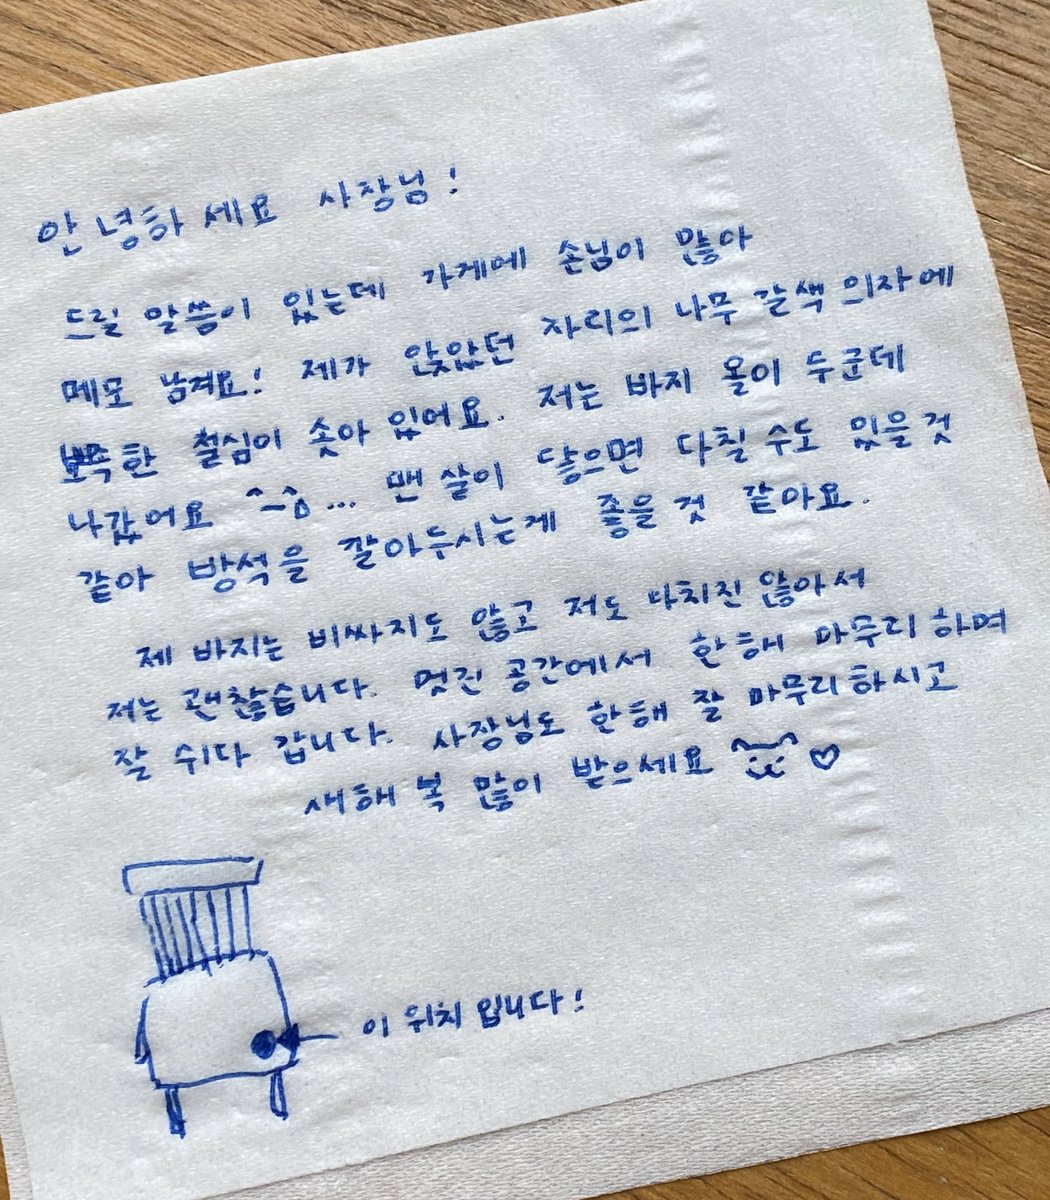 안녕하세요 사장님!
드릴 말씀이 있는데 가게에 손님이 많아
메모 남겨요! 제가 앉았던 자리의 나무 갈색 의자에
뾰족한 철심이 솟아 있어요. 저는 바지 올이 두군데
나갔어요 ... 맨 살이 닿으면 다칠 수도 있을 것
같아 방석을 깔아두시는게 좋을 것 같아요.
제 바지는 비싸지도 않고 저도 다치진 않아서
저는 괜찮습니다. 멋진 공간에서 한 해 마무리 하며
잘 쉬다 갑니다. 사장님도 한해 잘 마무리하시고
새해 복 많이 받으세요 ♡
이 위치 입니다!